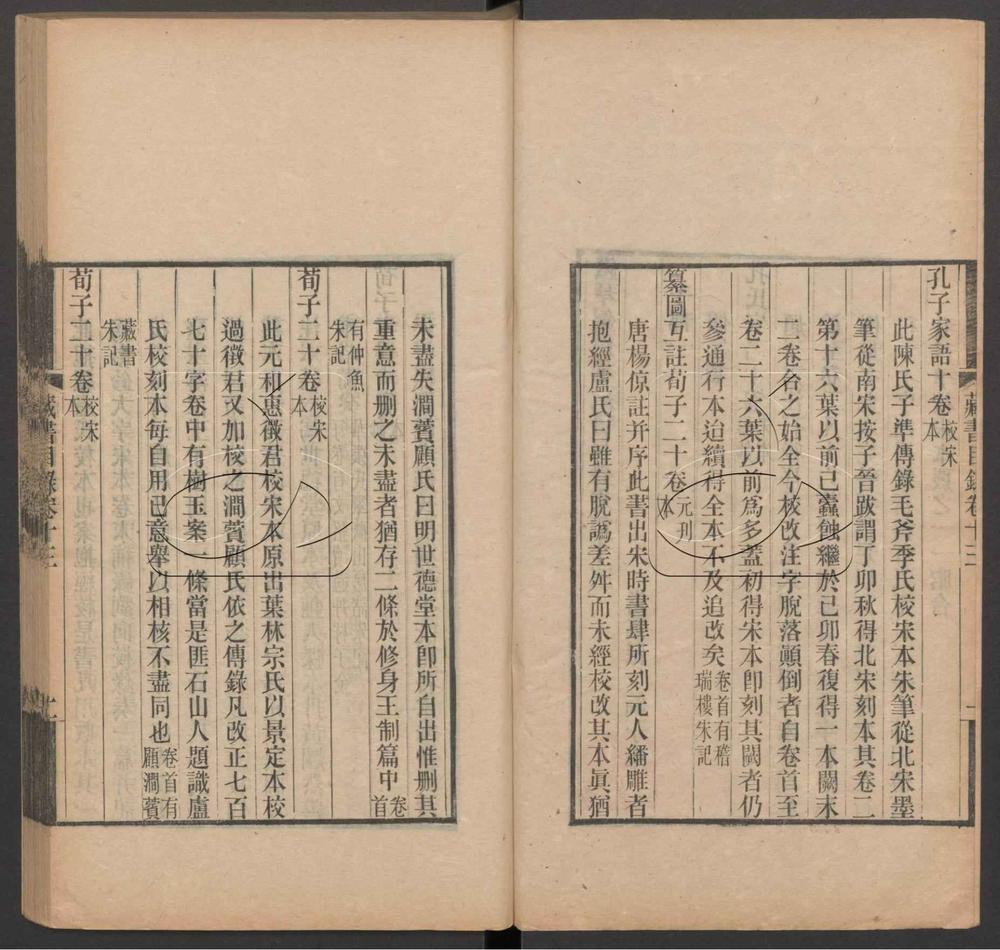 藏書目錄卷十三
一
孔子家語十卷校宋本
此陳氏子準傳錄毛斧季氏校宋本朱筆從北宋墨
筆從南宋按子晉跋謂丁卯秋得北宋刻本其卷二
第十六葉以前已蠹蝕繼於己卯春復得一本闕末
二卷合之始全今校改注字脫落顚倒者自卷首至
卷二十六葉以前爲多蓋初得宋本卽刻其闕者仍
參通行本迨續得全本不及追改矣卷首有稽瑞樓朱記
纂圖互註荀子二十卷元刋本
唐楊倞註并序此書出宋時書肆所刻元人繙雕者
抱經盧氏曰雖有脫譌差舛而未經校改其本眞猶
未盡失澗薲顧氏曰明世德堂本卽所自出惟删其
重意而删之未盡者猶存二條於修身王制篇中卷首
有仲魚朱記
荀子二十卷校宋本
此元和惠徵君校宋本原出葉林宗氏以景定本校
過徵君又加校之澗薲顧氏依之傳錄凡改正七百
七十字卷中有樹玉案一條當是匪石山人題識盧
氏校刻本每自用己意舉以相核不盡同也卷首有顧澗薲
藏書朱記
荀子二十卷校宋本
藏書目錄卷十三